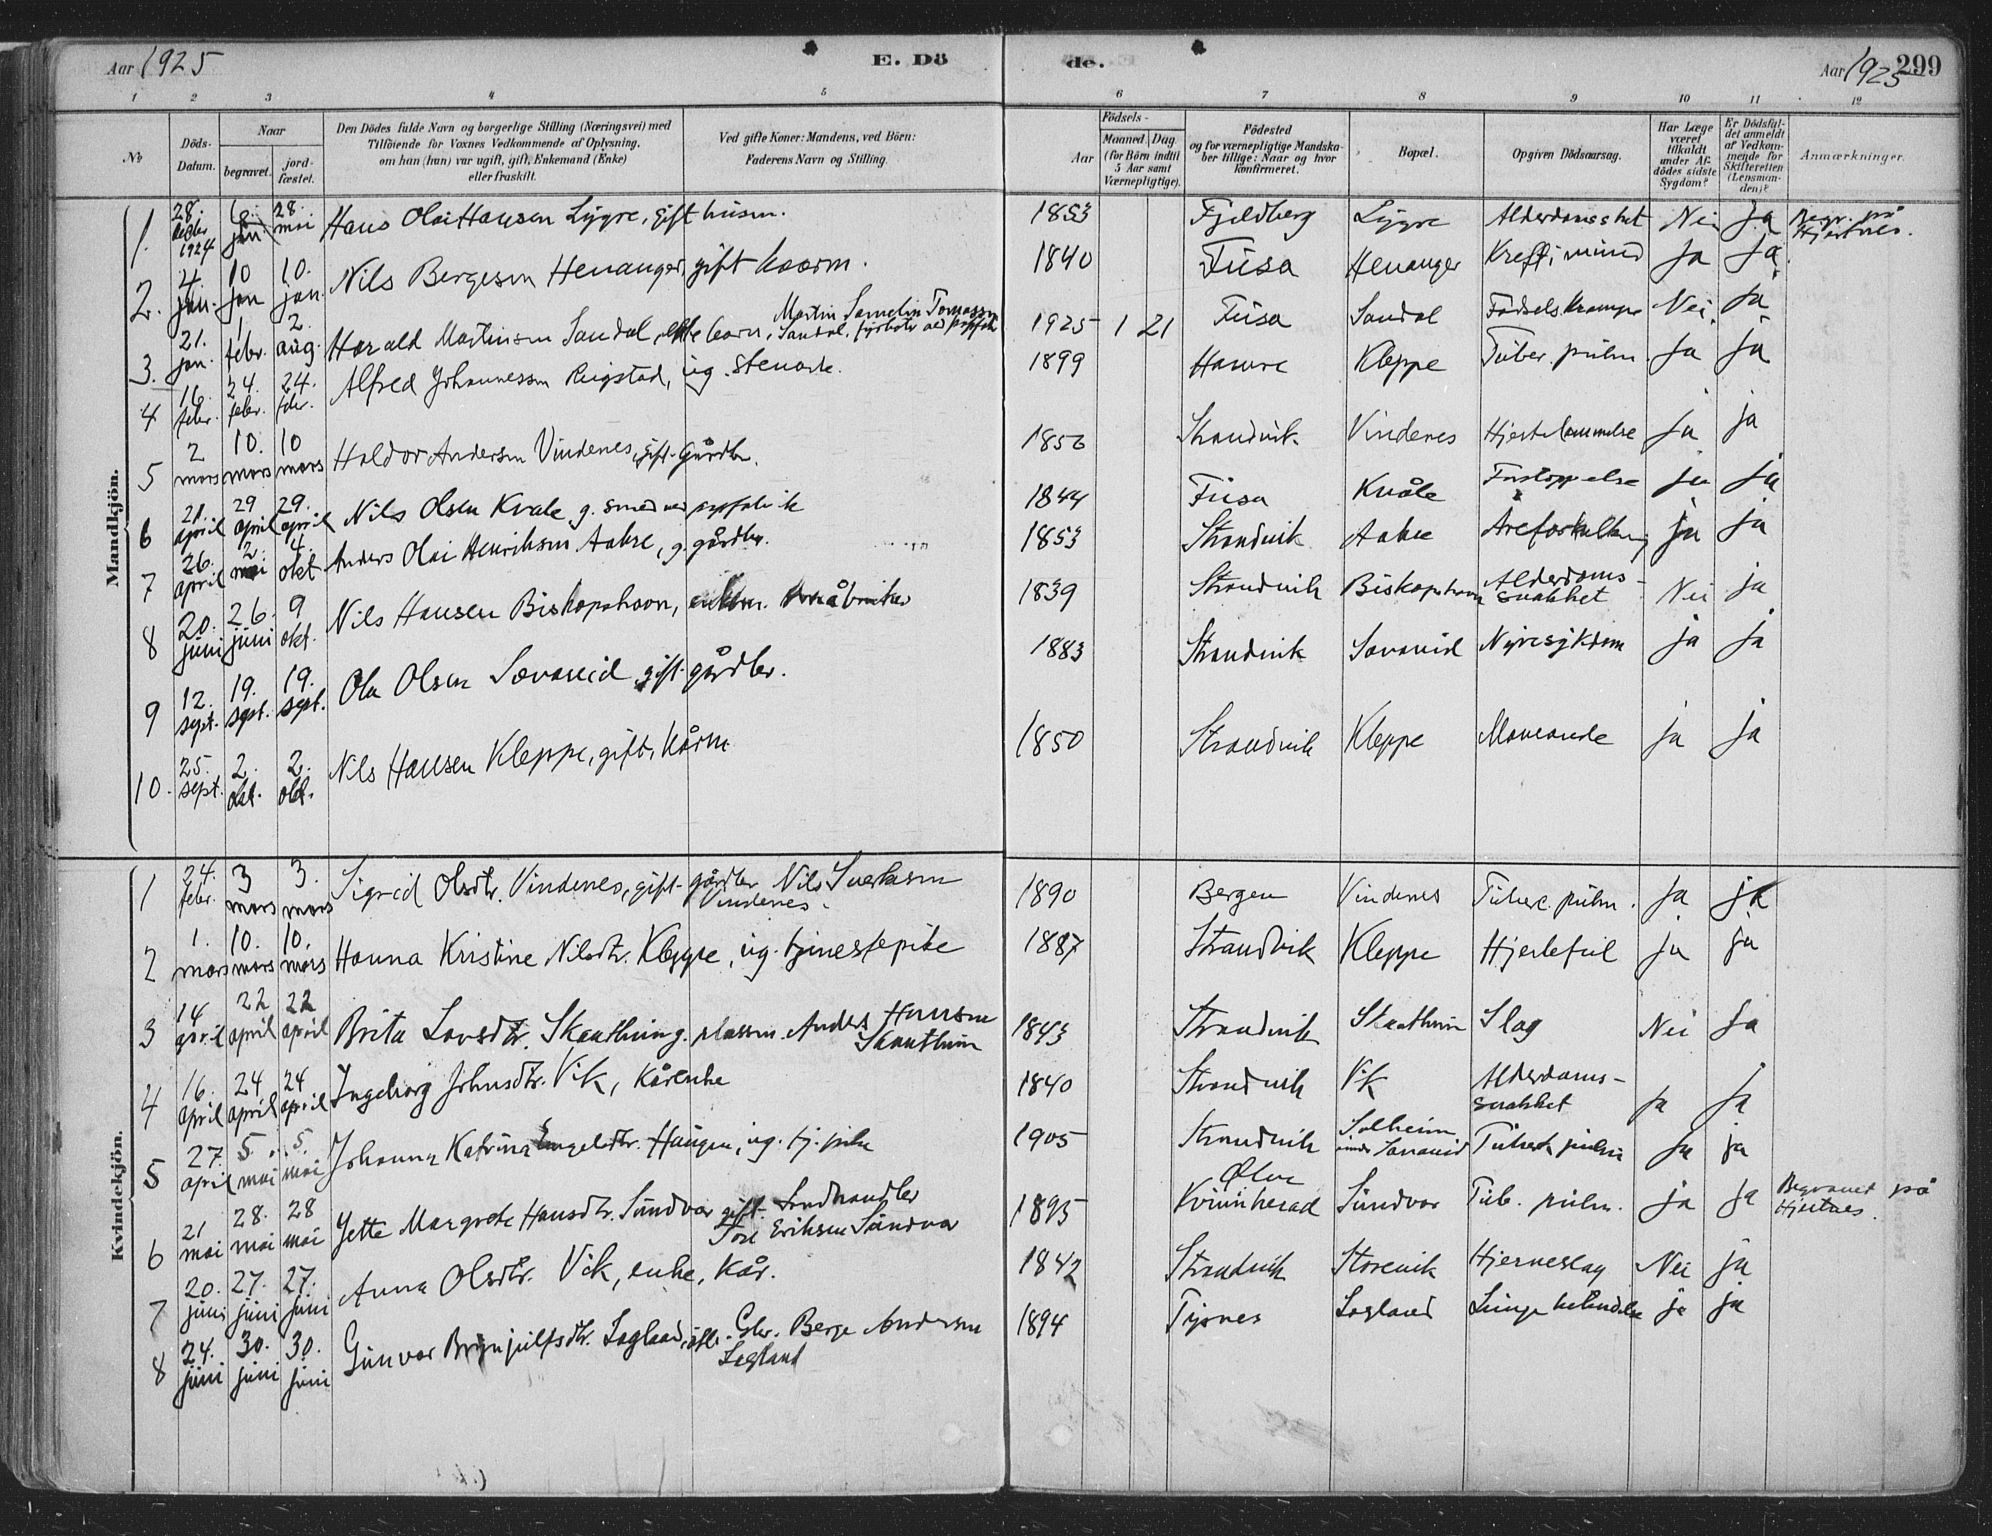 Aar 1925
E. Dö
de.
Aar 1925
299
1 2 3 4 5 6 7 8 9 10 11 12
No
Döds-Datum.
Naar
begravet.
jordfæstet.
Den Dödes fulde Navn og borgerlige Stilling (Næringsvei) med
Tilföiende for Voxnes Vedkommende af Oplysning,
om han (hun) var ugift, gift, Enkemand (Enke)
eller fraskilt.
Ved gifte Koner: Mandens, ved Börn:
Faderens Navn og Stilling.
Födsels-
Aar
Maaned Dag
(for Börn indtil
5 Aar samt
Værnepligtige).
Födested
og for værnepligtige Mandskaber tillige: Naar og hvor
konfirmeret.
Bopæl.
Opgiven Dödsaarsag.
Har Læge
været
tilkaldt
under Afdödes sidste
Sygdom?
Er Dödsfaldet anmeldt
af Vedkommende for
Skifteretten
(Lensmanden)?
Anmærkninger.
Mandkjön.
1. 28. 1924 28 mai Hans Olai Hansen Lygre, gift husm. 1853 Fjeldberg Lygre Nei Ja Begr. på Hjertnes.
2. 4. jan. 10 jan 10. jan. Nils Bergesen Henanger, gift kaarm. 1840 Fusa Henanger Kreft i mund Ja Ja
3. 21. jan. 1 febr. 2. aug. Harald Martinsen Sandal, barn, Martin Sandal, 1925 1 21 Fusa Sandal Fødselskrampe Nei. Ja
4 16. febr. 24. febr. 24. febr. Alfred Johannessen Ringstad, ug. 1899 Hamre Kleppe Tuber. pulm. Ja Ja
5 2 mars 10. mars 10 mars Haldor Andersen Vindenes, gift gårdbr. Strandvik Vindenes Hjertelammelse Ja ja
6 21. april 29 april 29. april Nils Olsen Kvåle g. smed 1844 Fusa Kvåle Forstoppelse ja ja
7 26. april 2. mai 4. okt. Anders Olai Henriksen Aakre, g. gårdbr. 1853 Strandvik Aakre Åreforkalkning ja ja
8 20. juni 26. juni 9 okt. Nils Hansen Bispshavn, enkem. 1839 Strandvik Alderdomssvakhet Nei ja
9 12. sept. 19. sept. 19. sept. Ola Olsen Sævareid gift gårdbr. 1883 Strandvik Sævareid Nyresykdom ja ja
10. 25. sept. 2. okt. 2. okt. Nils Hansen Kleppe, gift, kårm 1850 Strandvik Kleppe ja ja
Kvindekjön.
1 24. febr. 3 mars 3. mars Sigrid Olsdtr. Vindenes, gift gårdbr Nils Vindenes. 1890 Bergen Vindenes Tuberc. pulm. Ja ja
2 1. mars 10. mars 10. mars Hanna Kristine Nilsdtr. Kleppe, ug. tjenestepike 1887 Strandvik Kleppe Hjertefeil ja ja
3 14 april 22 april 22 april Brita Larsdtr. Skauthun g. plassm. Anders Hansen Skauthun 1843 Strandvik Skauthun Slag Nei Ja
4 16. april 24 april 24 april Ingeborg Johnsdtr. Vik, kårenke 1840 Strandvik Vik Alderdomssvakhet ja ja
5 27. april 5. mai 5. mai Johanna Katrina Engelsdtr. Haugen, ug. tj. pike 1905 Strandvik Solheim under Sævareid Tuberk pulm ja ja
6 21 mai 28. mai 28 mai Jette Margrete Hansdtr. Sundvor gift Landhandler Tore Eriksen Sundvor 1895 Ølve Kvinnherad Sundvor Tub. pulm. ja ja Begravet på Hjertnes.
7 20. juni 27. juni 27. juni Anna Olsdtr. Vik, enke, kår. 1842 Strandvik Storevik Hjerneslag Nei ja
8 24. juni 30. juni 30. juni Gunvor Brynjulfsdtr. Lægland, Gbr. Berge Andersen Lægland 1894 Tysnes Lægland Lungebetændelse ja ja